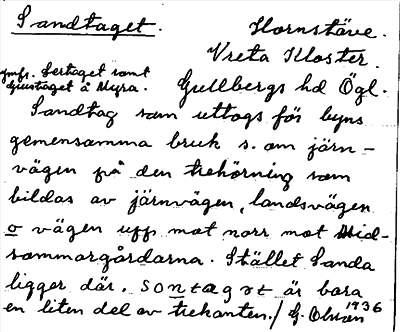 Sandtaget.
Hornstäve.
Vreta Kloster.
jmfr. Lertaget samt
Grustaget å Myra.
Gullbergs hd Ögl.
Sandtag som uttogs för byns
gemensamma bruk s. om järn-
vägen på den trehörning som
bildas av järnvägen, landsvägen
o vägen upp mot norr mot Mid-
sommargårdarna. Stället Sanda
ligger där. sontagət är bara
en liten del av trekanten./ G. Olsson
1936